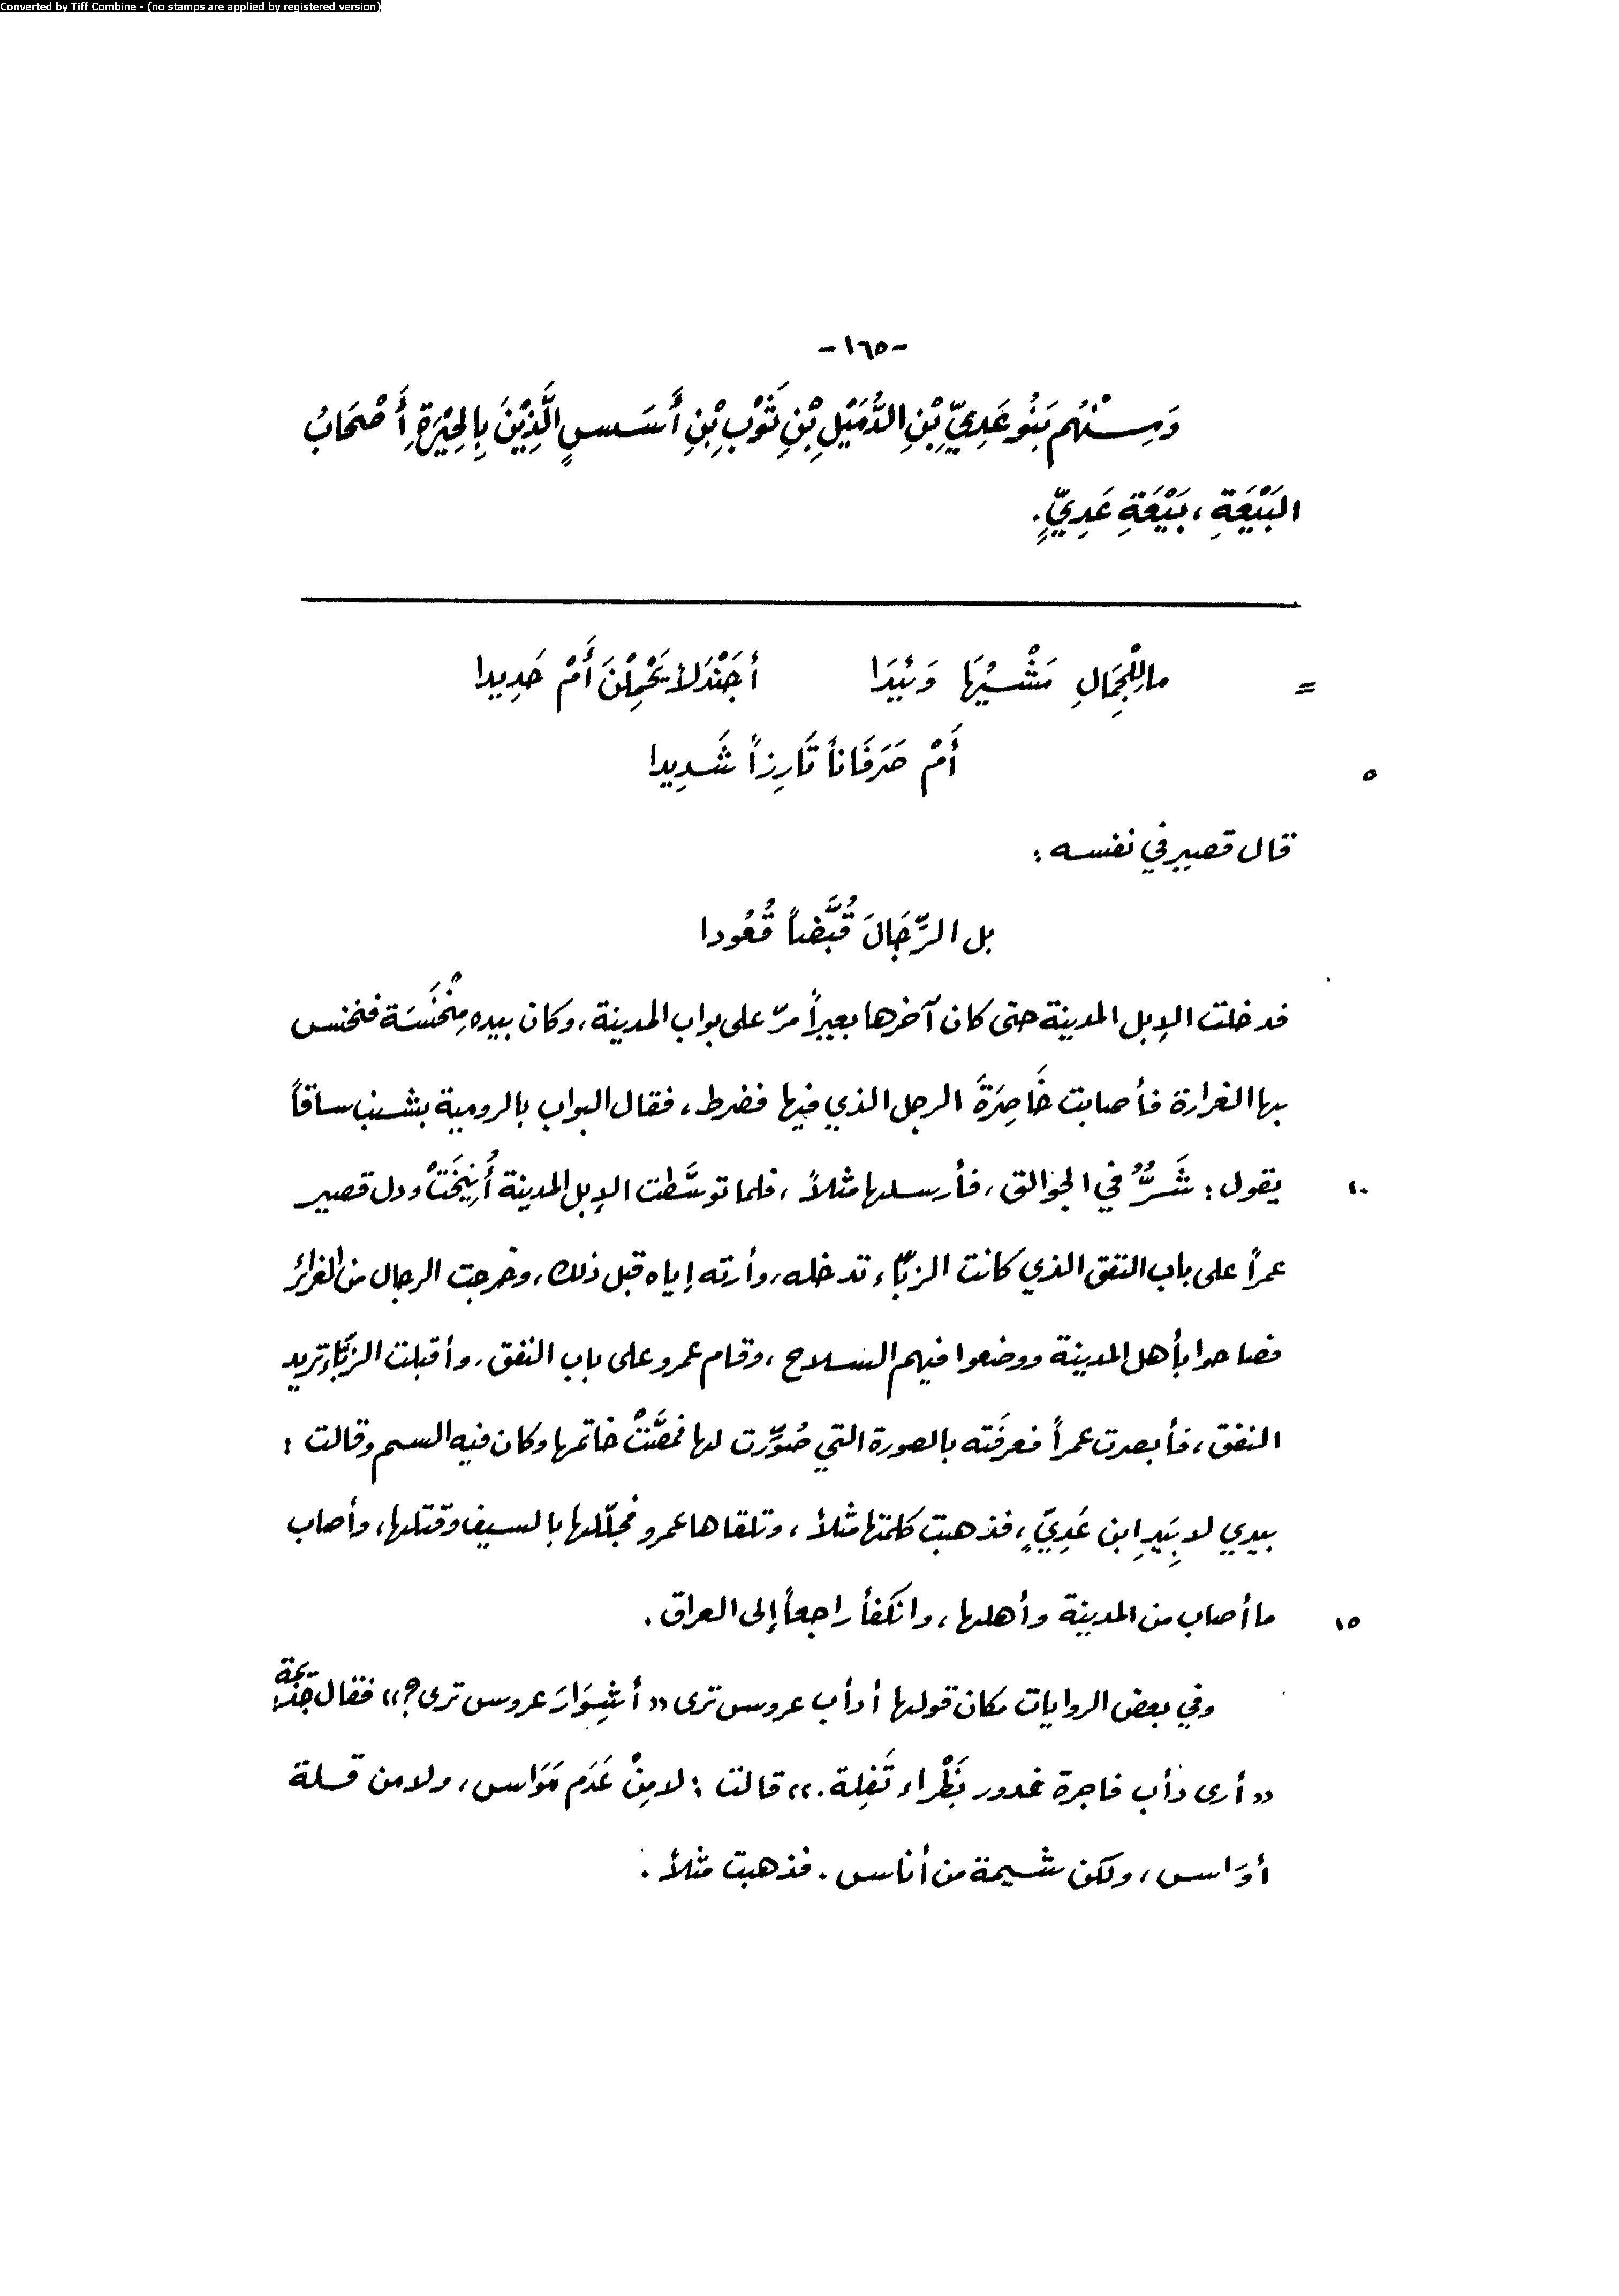 Converted by Tiff Combine - (no stamps are applied by registered version)
-١٦٥-
وَمِنْهُم بَنُو عَدِيِّ بْنِ الدُّمَيْلِ بْنِ ثَوْبِ بْنِ أَسَسٍ الَّذِيْنَ بِالحِيْرَةِ أَصْحَابُ
البَيْعَةِ، بَيْعَةِ عَدِيٍّ.
= ما لِلْجِمَالِ مَشْيُهَا وَئِيَدَا أجَنْدَلاً يَحْمِلْنَ أَمْ حَدِيدا
٥ أَمْ صَرَفَاناً تَارِزاً شَدِيدا
قال قصير في نفسه :
بل الرِّجَالَ قُبَّضاً قُعُودا
فدخلت الإبل المدينة حتى كان آخرها بعيراً مرّ على بواب المدينة، وكان بيده مِنْخَسَة فنخس
بها الغرارة فأصابت خَاصِرَةَ الرجل الذي فيها فضرط، فقال البواب بالرومية بشنب ساقاً
١٠ يقول : شَرٌّ في الجوالق، فأرسلها مثلاً، فلما توسَّطت الإبل المدينة أُنِيْخَتْ ودل قصير
عمراً على باب النفق الذي كانت الزبّاء تدخله، وأرته إياه قبل ذلك، وخرجت الرجال من الغرائر
فصاحوا بأهل المدينة ووضعوا فيهم السلاح، وقام عمرو على باب النفق، وأقبلت الزبّاء تريد
النفق، فأبصرت عمراً فعرفَته بالصورة التي صُوِّرت لها فمصَّتْ خاتمها وكان فيه السم وقالت :
بيدي لا بِيَدِ ابن عَدِيٍّ، فذهبت كلمتها مثلاً، وتلقاها عمرو فجلّلها بالسيف وقتلها، وأصاب
١٥ ما أصاب من المدينة وأهلها، وانكفأ راجعاً إلى العراق.
وفي بعض الروايات مكان قولها أدأب عروس ترى «أشِوَارَ عروس ترى؟» فقال جذيمة
«أرى دأب فاجرة غدور بَظْراء تَفِلة.» قالت : لا مِنْ عَدَم مَوَاس، ولا من قلة
أوَاس، ولكن شيمة من أناس. فذهبت مثلاً.